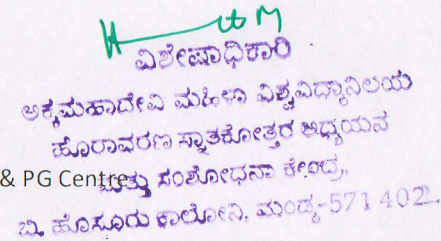 ವಿಶೇಷಾಧಿಕಾರಿ
ಅಕ್ಕಮಹಾದೇವಿ ಮಹಿಳಾ ವಿಶ್ವವಿದ್ಯಾನಿಲಯ
ಹೊರಾವರಣ ಸ್ನಾತಕೋತ್ತರ ಅಧ್ಯಯನ
& PG Centre
ಮತ್ತು ಸಂಶೋಧನಾ ಕೇಂದ್ರ,
ಬಿ. ಹೊಸೂರು ಕಾಲೋನಿ, ಮಂಡ್ಯ-571402.